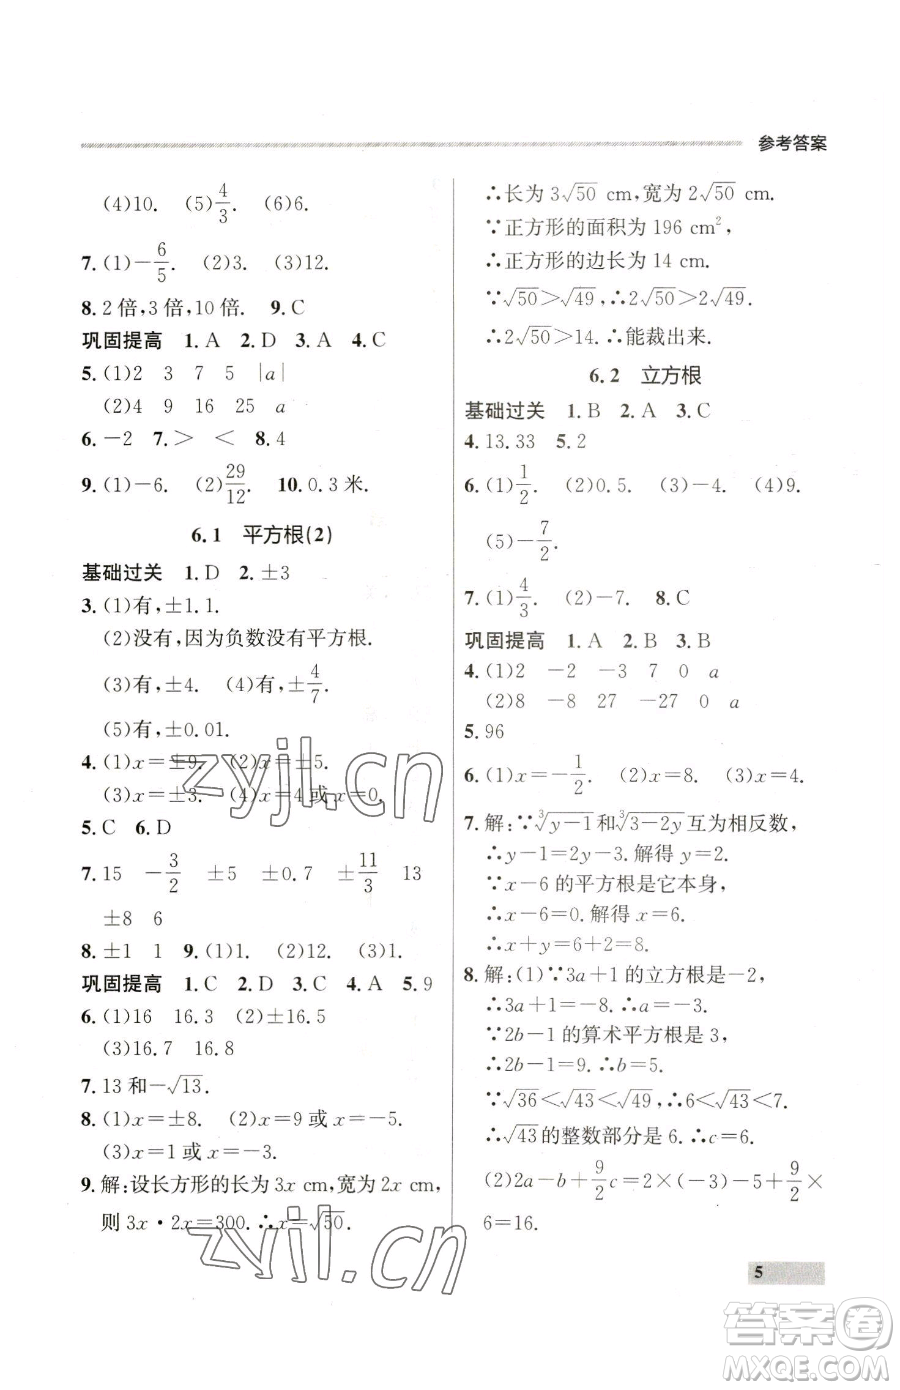 参考答案
(4)10. (5)4/3. (6)6.
7. (1)−6/5. (2)3. (3)12.
8. 2 倍,3 倍,10 倍. 9. C
巩固提高 1. A 2. D 3. A 4. C
5. (1)2 3 7 5 |a|
(2)4 9 16 25 a
6. −2 7. > < 8. 4
9. (1)−6. (2)29/12. 10. 0.3 米.
6.1 平方根(2)
基础过关 1. D 2. ±3
3. (1)有,±1.1.
(2)没有,因为负数没有平方根.
(3)有,±4. (4)有,±4/7.
(5)有,±0.01.
4. (1)x=±9. (2)x=±5.
(3)x=±3. (4)x=4 或 x=0.
5. C 6. D
7. 15 −3/2 ±5 ±0.7 ±11/3 13
±8 6
8. ±1 1 9. (1)1. (2)12. (3)1.
巩固提高 1. C 2. D 3. C 4. A 5. 9
6. (1)16 16.3 (2)±16.5
(3)16.7 16.8
7. 13 和−√13.
8. (1)x=±8. (2)x=9 或 x=−5.
(3)x=1 或 x=−3.
9. 解:设长方形的长为 3x cm,宽为 2x cm,
则 3x·2x=300. ∴x=√50.
∴长为 3√50 cm,宽为 2√50 cm.
∵正方形的面积为 196 cm²,
∴正方形的边长为 14 cm.
∵√50>√49,∴2√50>2√49.
∴2√50>14. ∴能裁出来.
6.2 立方根
基础过关 1. B 2. A 3. C
4. 13.33 5. 2
6. (1)1/2. (2)0.5. (3)−4. (4)9.
(5)−7/2.
7. (1)4/3. (2)−7. 8. C
巩固提高 1. A 2. B 3. B
4. (1)2 −2 −3 7 0 a
(2)8 −8 27 −27 0 a
5. 96
6. (1)x=−1/2. (2)x=8. (3)x=4.
7. 解:∵∛y−1和∛3−2y互为相反数,
∴y−1=2y−3. 解得 y=2.
∵x−6 的平方根是它本身,
∴x−6=0. 解得 x=6.
∴x+y=6+2=8.
8. 解:(1)∵3a+1 的立方根是−2,
∴3a+1=−8. ∴a=−3.
∵2b−1 的算术平方根是 3,
∴2b−1=9. ∴b=5.
∵√36<√43<√49,∴6<√43<7.
∴√43的整数部分是 6. ∴c=6.
(2)2a−b+9/2c=2×(−3)−5+9/2×
6=16.
5
zyjl.cn
zyjl.cn
答案圈
MXQE.COM